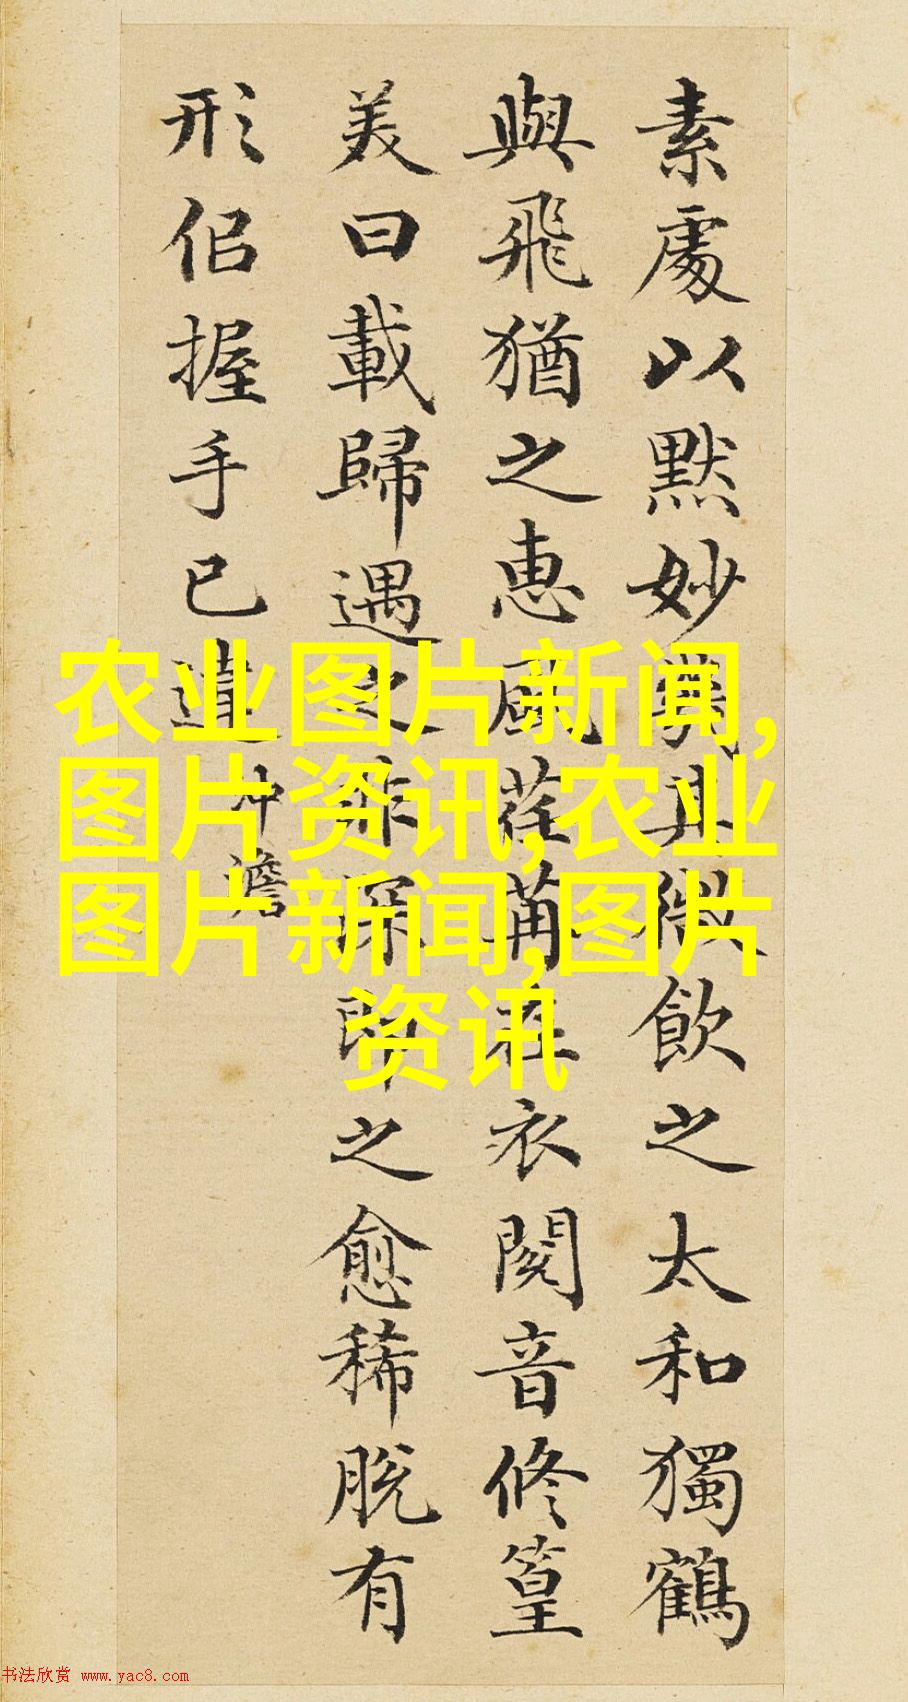 素處以默妙機其微飲之太和獨鶴
與飛猶之惠風荏苒在衣閱音修篁
美曰載歸遇之非深即之愈稀脫有
形佀握手已違
沖澹
农业图片新闻,
图片资讯,农业
图片新闻,图片
资讯
书法欣赏 www.yac8.com